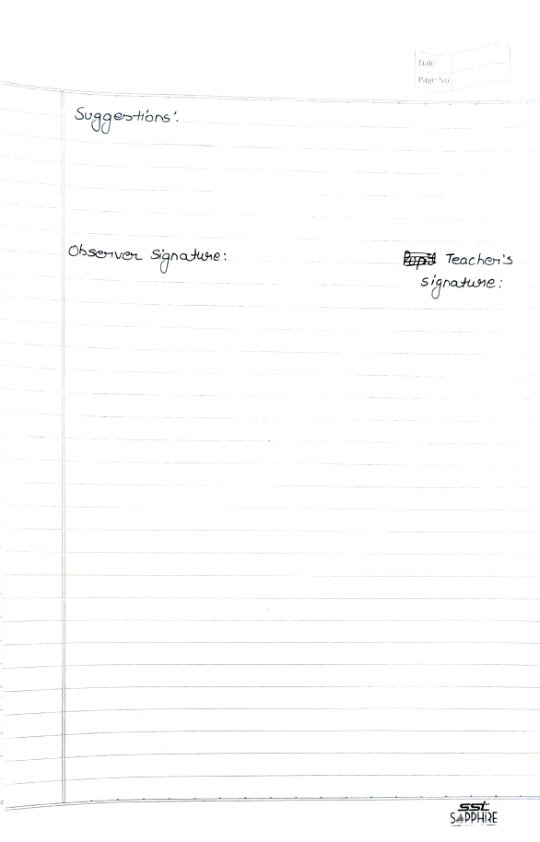 Date
Page No.
Suggestions:
Observer signature: Teacher's
signature:
sst
SAPPHIRE